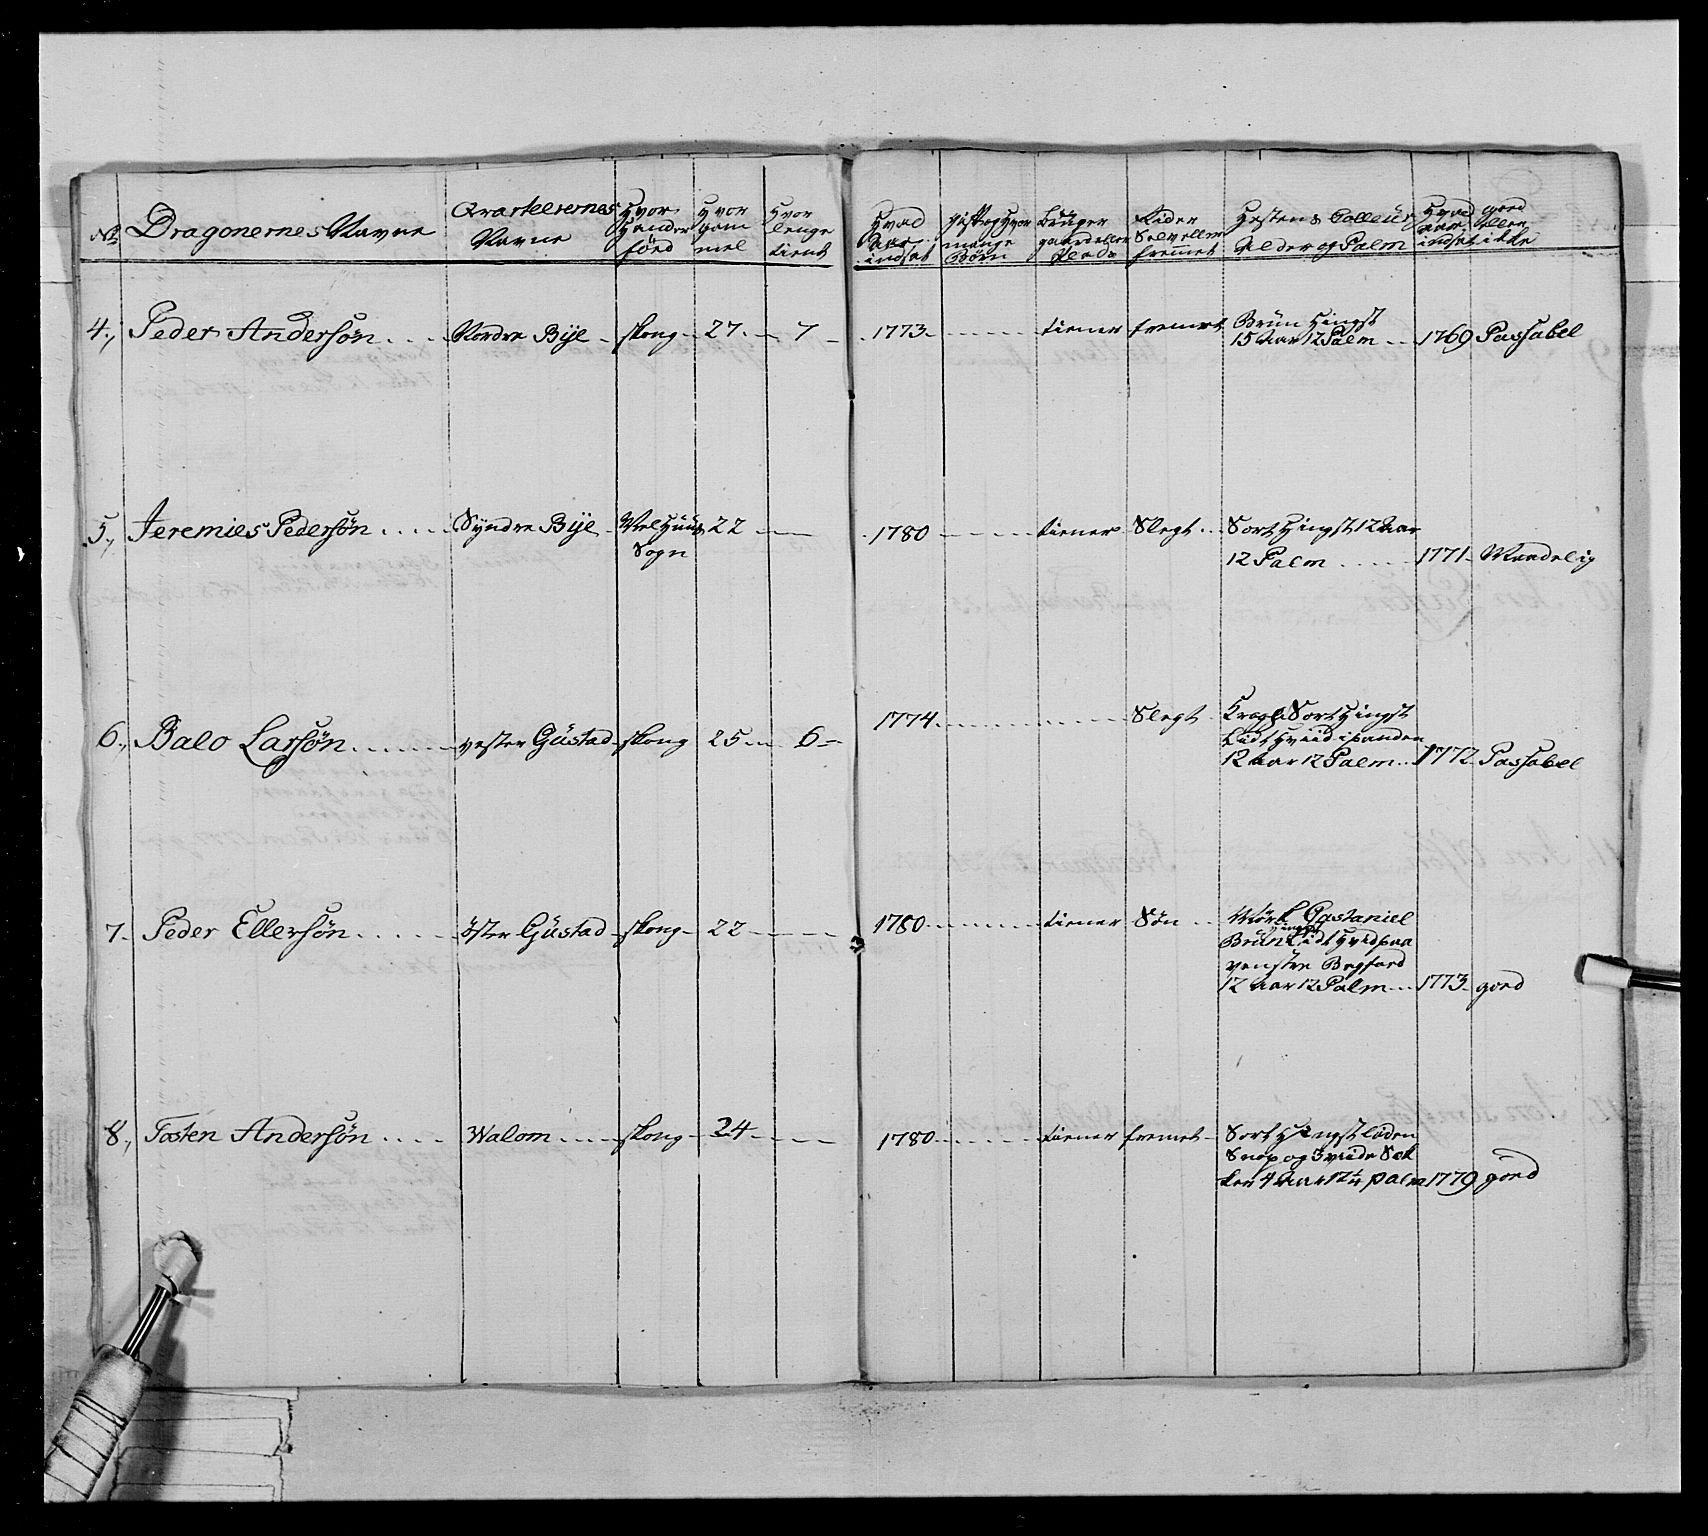 No Dragonernes Navne
Qvarteerernes Navne
Hvor Hand er föed
Hvor gam mel
Hvor lenge tient
Hvad Aar indsat
gift og Hvor mange Börn
Bruger gaard eller Plads
Rider Selv eller fremmet
Hestens Colleur Alder og Palm
Hvad Aar indsat
goed eller ikke
4., Peder Andersøn.... Nordre Bÿe - skong - 27. - 7 - 1773 - tiener fremet Brün Hingst
15 Aar 12 Palm - 1769 Passabel
5., Jeremies Pedersøn.... Syndre Bÿe - 22 - 1780 - tiener Slegt. Sort Hingst 12 Aar
Sogn 12 Palm ..... 1771. Maadelig
6., Balo Larsøn...... vester Güstad skong 25 - 6 - 1774. Slegt Sort Hingst
Lidt Hviid i panden
12 Aar 12 Palm.. 1772. Passabel
7. Peder Ellersøn..... öster Güstad skong - 22 - 1780 - tiener Søn .. Mörk Castaniel
Brün Hingst Lidt Hvid paa
venstre Bagfoed
12 Aar 12 Palm... 1773. goed
8., Tosten Andersøn.... Walom.... skong - 24 - 1780 - tiener fremet - Sort Hingst liden
Snop og 3 Hviide
4 Aar 12 1/4 palm 1779 goed